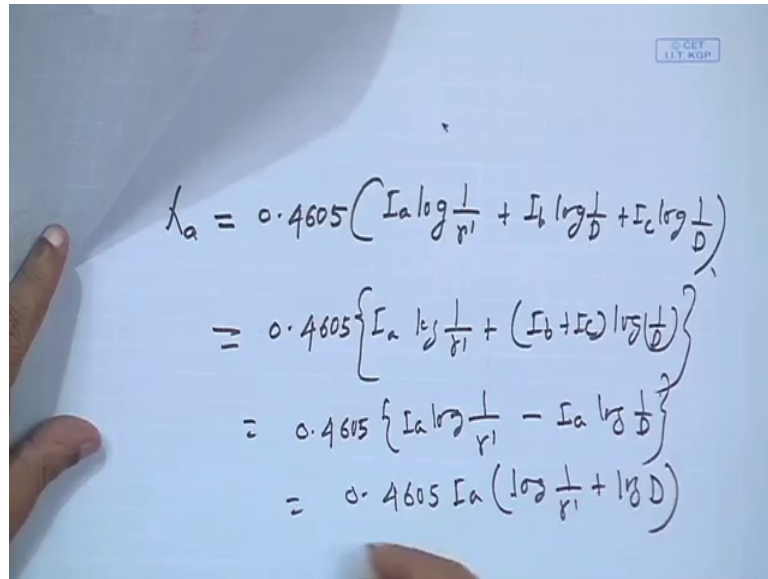 © CET
I.I.T. KGP
λa = 0.4605 ( Ia log 1/r' + Ib log 1/D + Ic log 1/D )
= 0.4605 { Ia log 1/r' + (Ib + Ic) log (1/D) }
= 0.4605 { Ia log 1/r' - Ia log 1/D }
= 0.4605 Ia ( log 1/r' + log D )